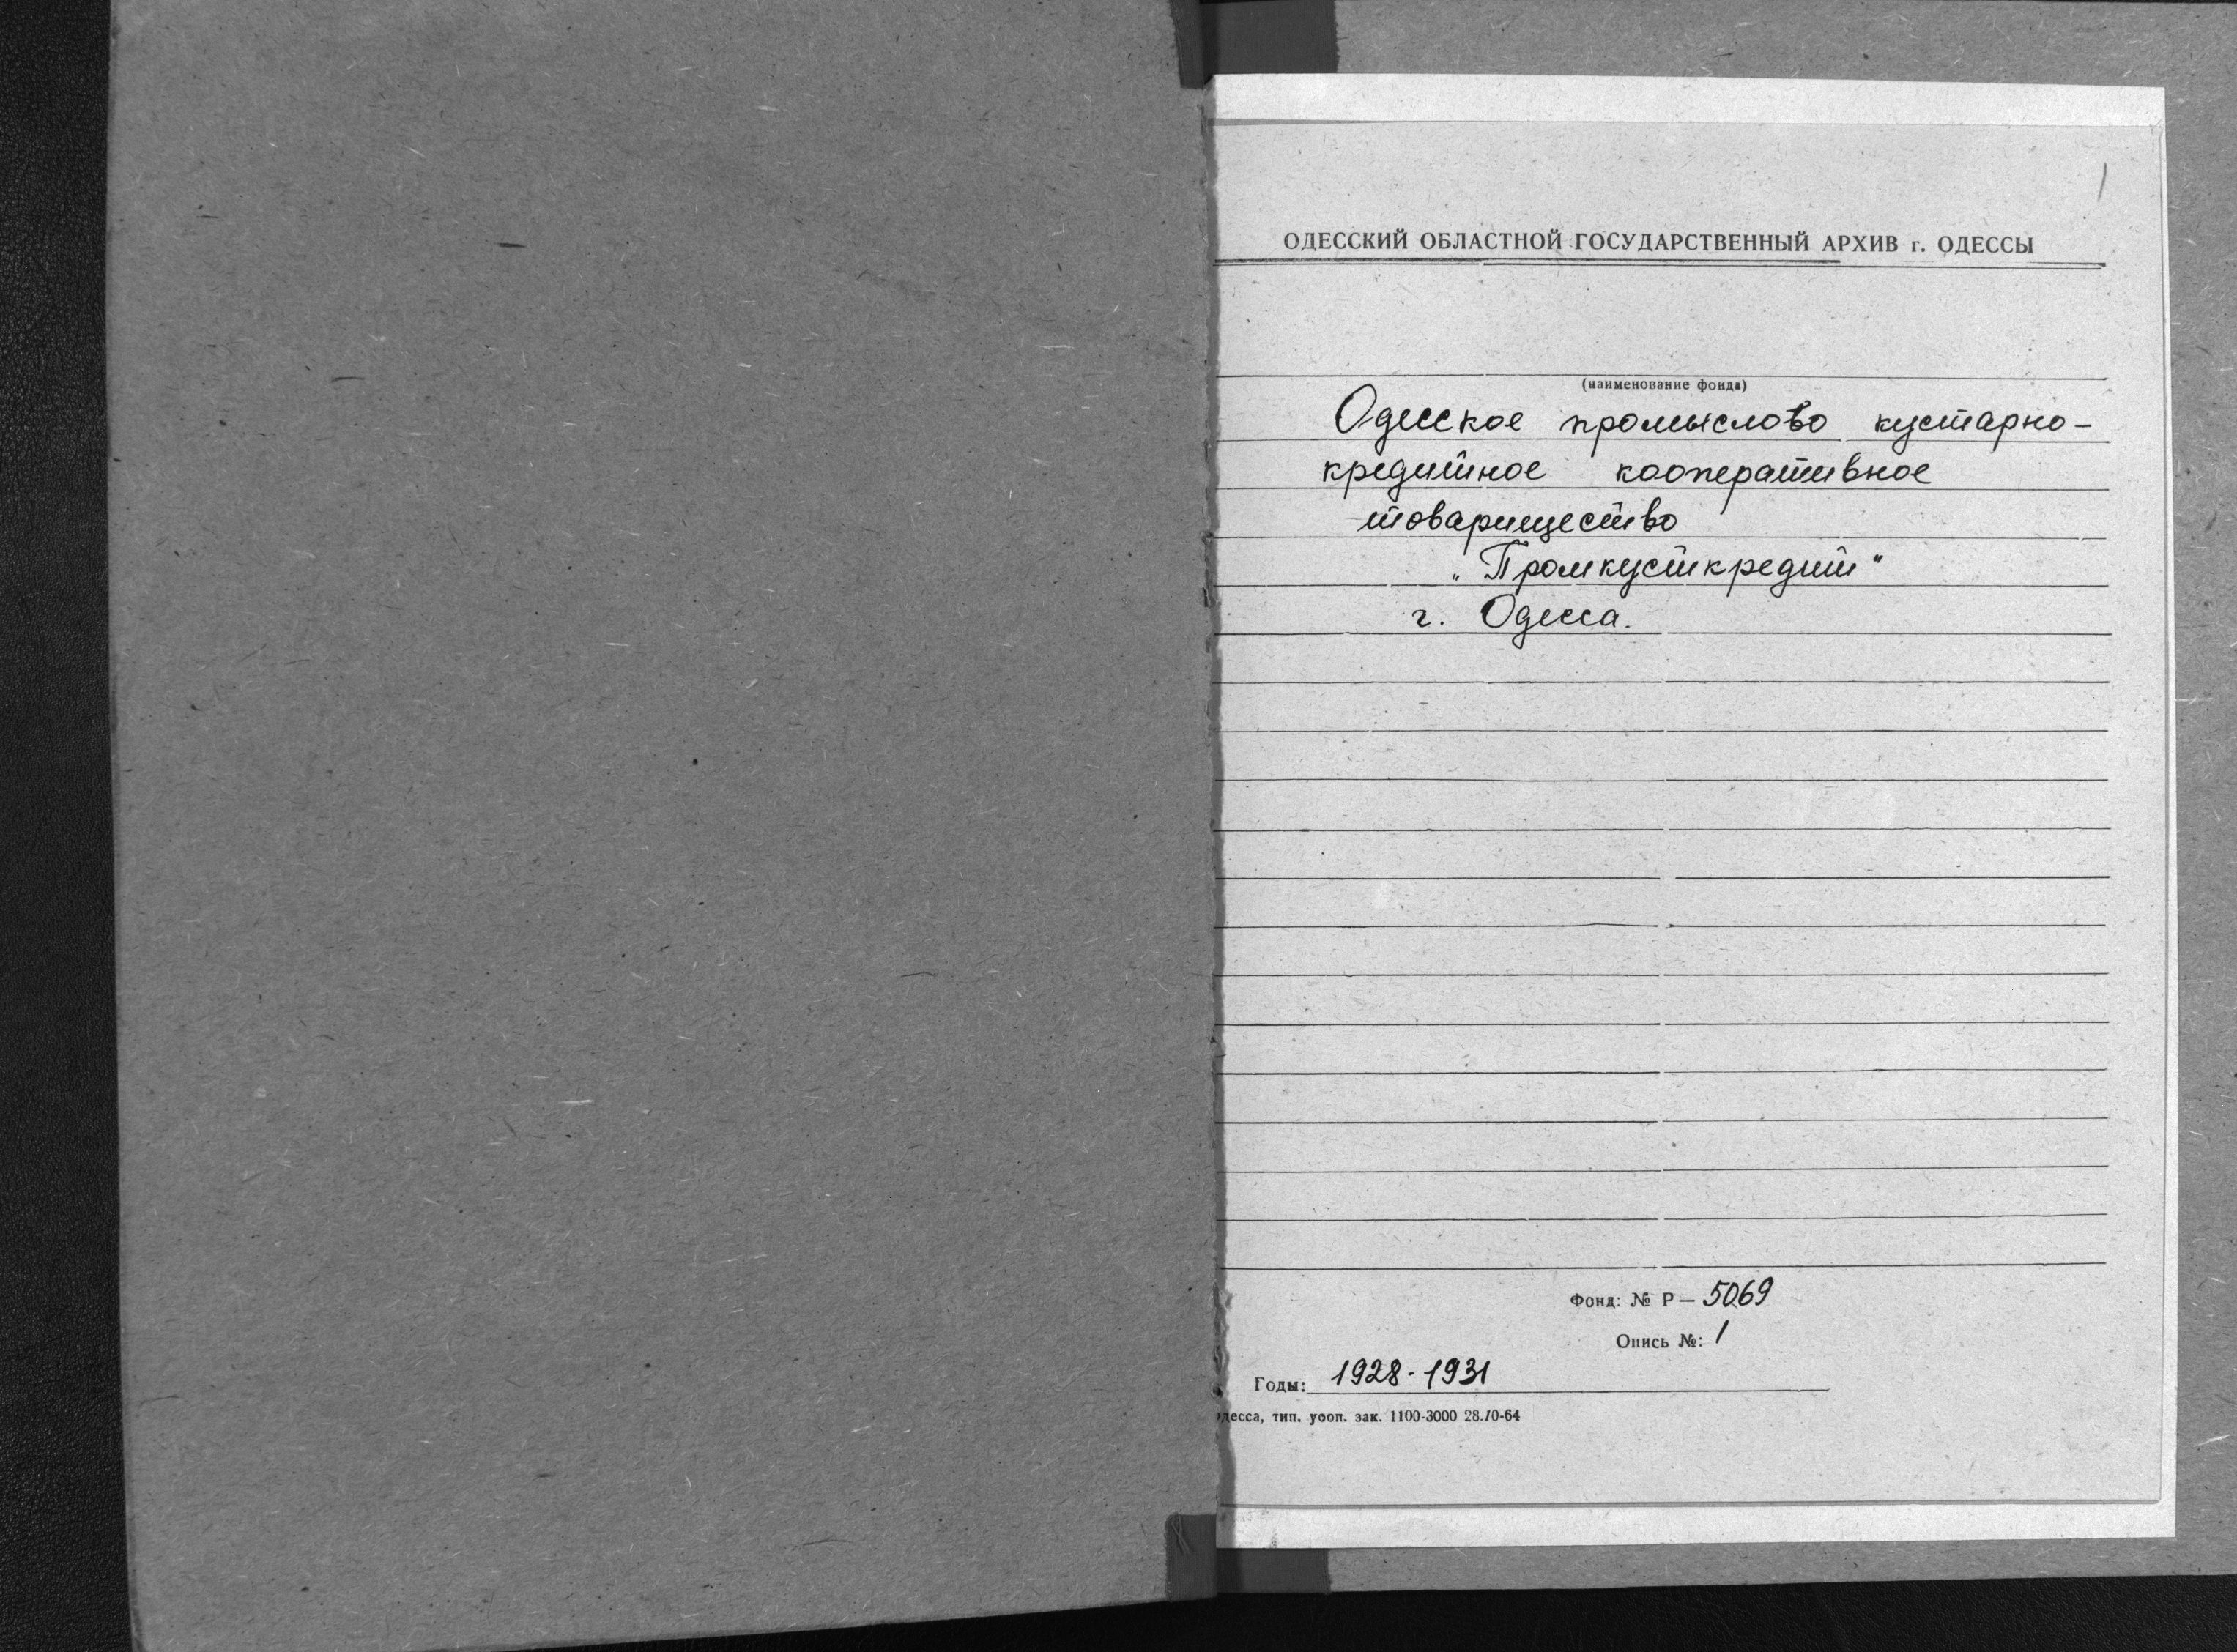 1
ОДЕССКИЙ ОБЛАСТНОЙ ГОСУДАРСТВЕННЫЙ АРХИВ г. ОДЕССЫ
(наименование фонда)
Одесское промыслово кустарно-
кредитное кооперативное
товарищество
„Промкусткредит"
г. Одесса.
Фонд: № Р— 5069
Опись №: 1
Годы: 1928-1931
десса, тип. уооп. зак. 1100-3000 28.10-64